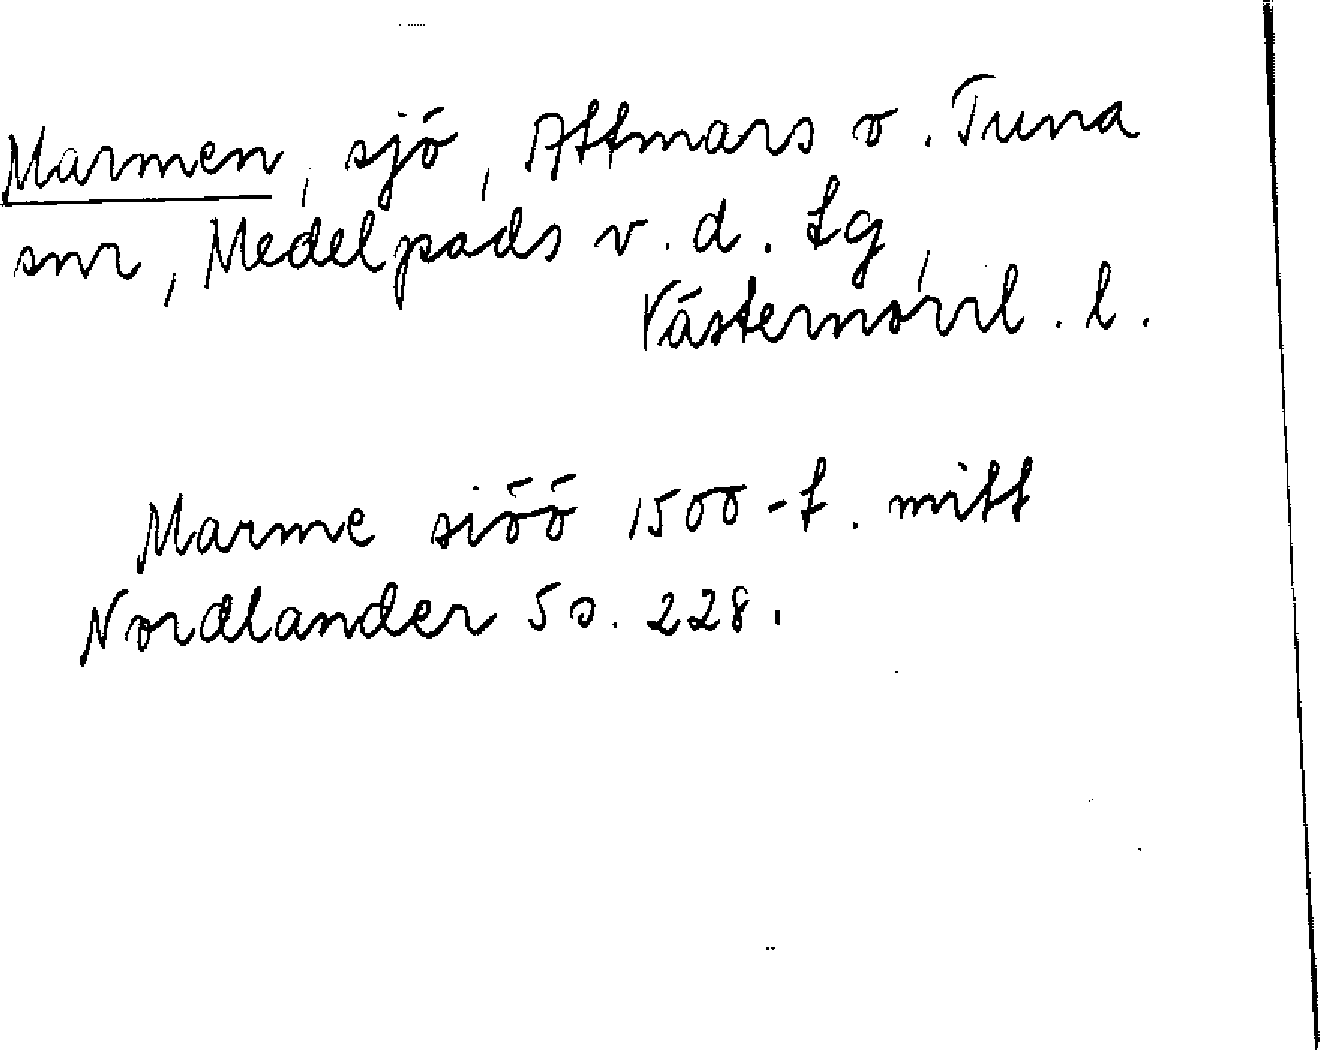 Marmen, sjö, Attmars o. Tuna
snr, Medelpads v. d. tg,
Västernorrl. l.
Marme siöö 1500-t. mitt
Nordlander 5 s. 228.